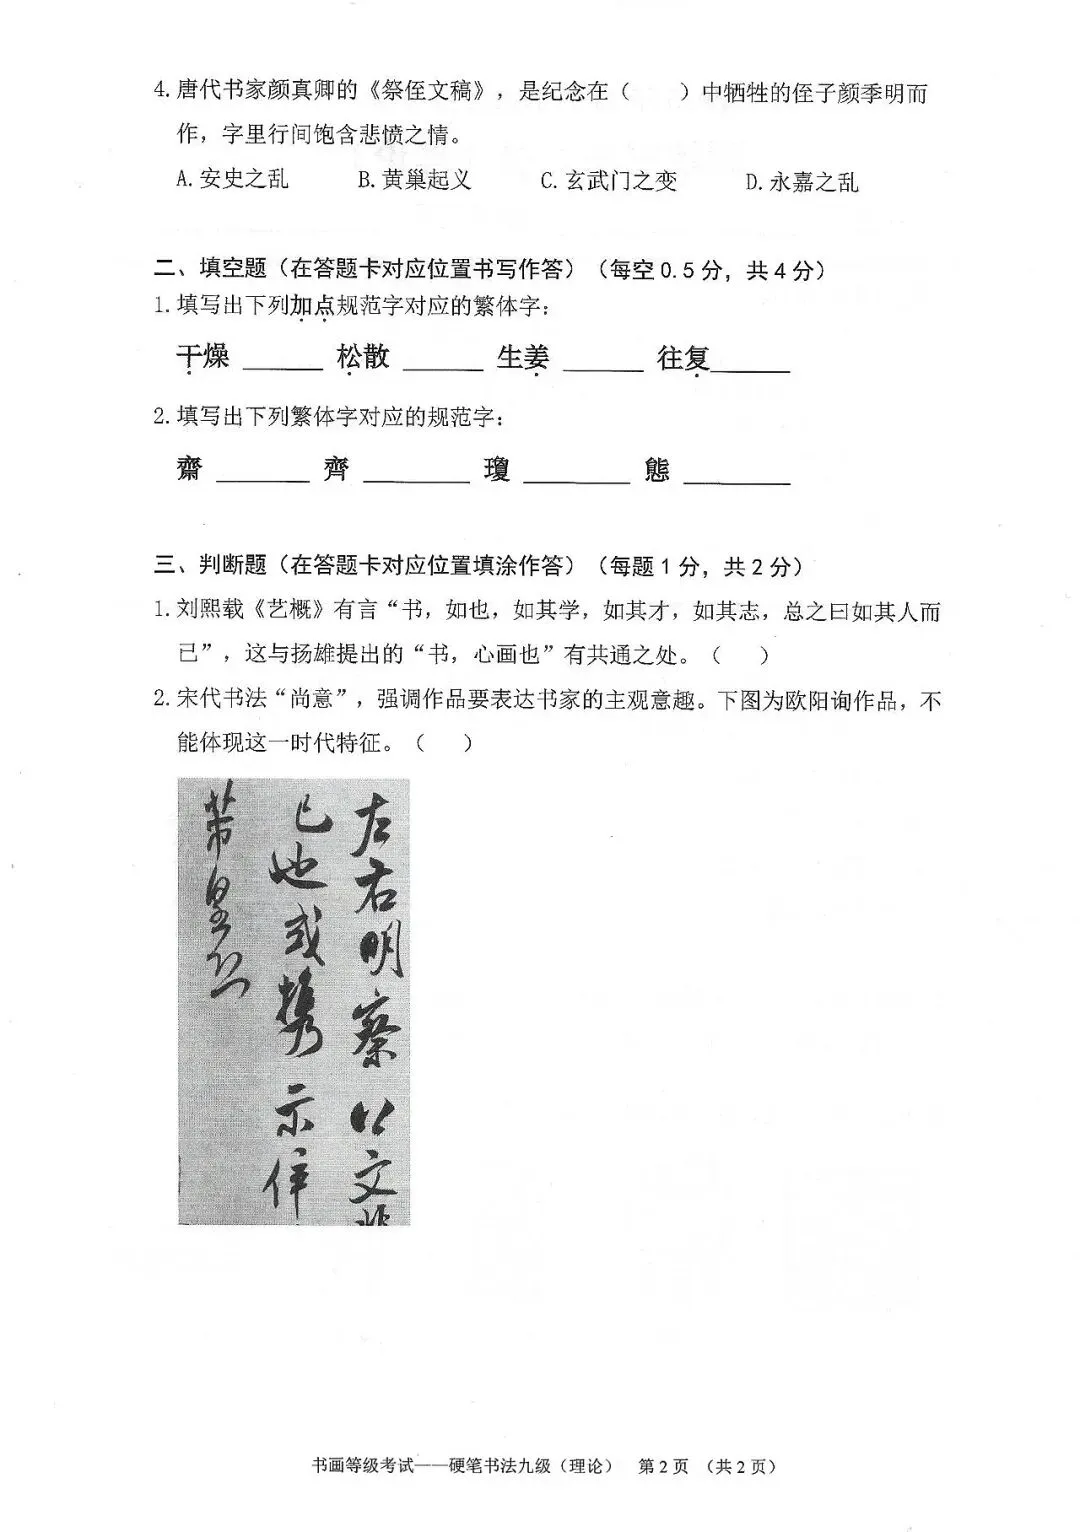 4. 唐代书家颜真卿的《祭侄文稿》，是纪念在（　　）中牺牲的侄子颜季明而
作，字里行间饱含悲愤之情。
A. 安史之乱　　B. 黄巢起义　　C. 玄武门之变　　D. 永嘉之乱
二、填空题（在答题卡对应位置书写作答）（每空0.5分，共4分）
1. 填写出下列加点规范字对应的繁体字：
干燥 ______ 松散 ______ 生姜 ______ 往复______
2. 填写出下列繁体字对应的规范字：
齋 ______ 齊 ______ 瓊 ______ 態 ______
三、判断题（在答题卡对应位置填涂作答）（每题1分，共2分）
1. 刘熙载《艺概》有言“书，如也，如其学，如其才，如其志，总之曰如其人而
已”，这与扬雄提出的“书，心画也”有共通之处。（　　）
2. 宋代书法“尚意”，强调作品要表达书家的主观意趣。下图为欧阳询作品，不
能体现这一时代特征。（　　）
左右明察以文
已也或携示倅
芾皇恐
书画等级考试——硬笔书法九级（理论）　第2页　（共2页）